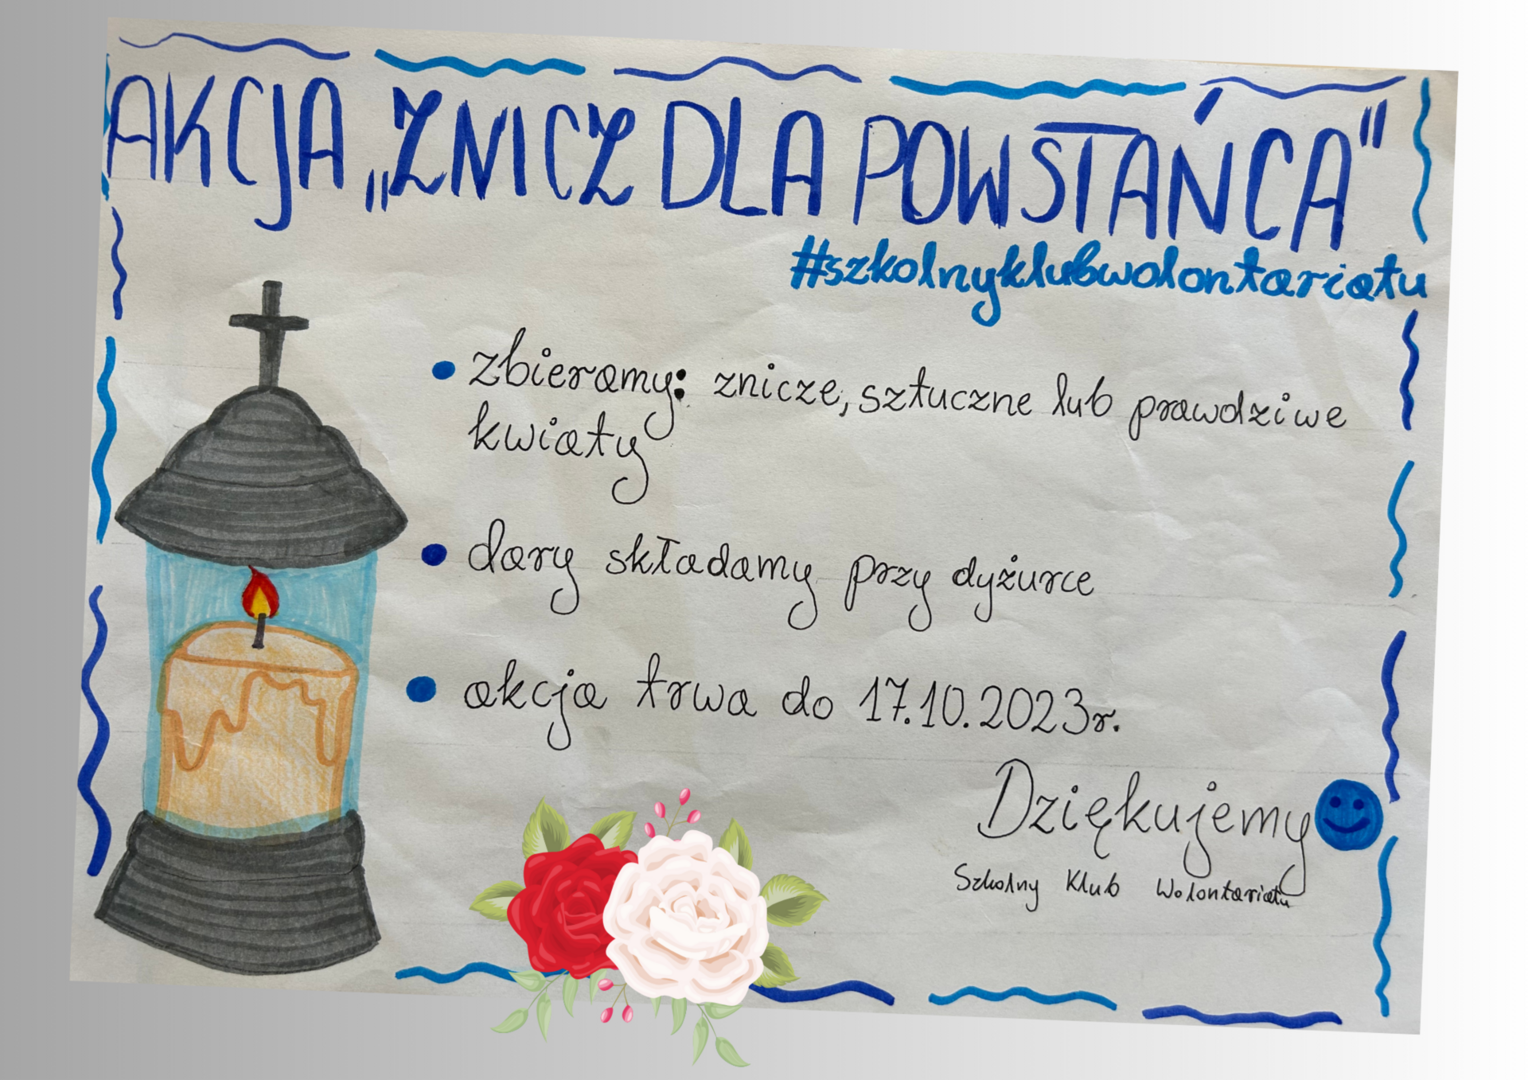 AKCJA „ZNICZ DLA POWSTAŃCA”
#szkolnyklubwolontariatu
• zbieramy: znicze, sztuczne lub prawdziwe
kwiaty
• dary składamy przy dyżurce
• akcja trwa do 17.10.2023r.
Dziękujemy
Szkolny Klub Wolontariatu